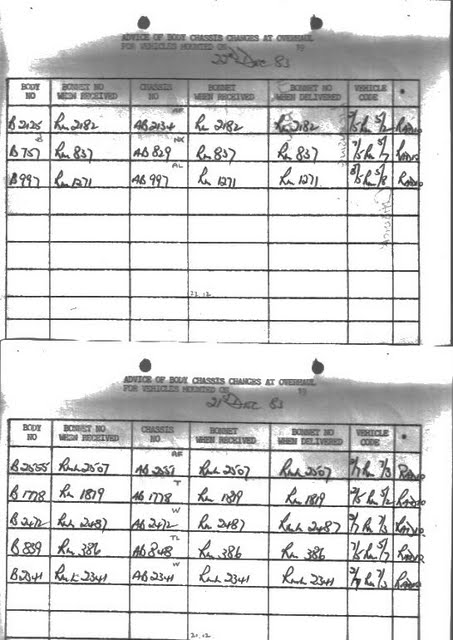 ADVICE OF BODY CHASSIS CHANGES AT OVERHAUL
FOR VEHICLES MOUNTED ON 19
22nd Dec 83
BODY NO BONNET NO WHEN RECEIVED CHASSIS NO BONNET WHEN RECEIVED BONNET NO WHEN DELIVERED VEHICLE CODE
B2125 Rm 2182 AB2134 Rm 2182 Rm 2182 Rm RADIO
B757 Rm 837 AB 829 Rm 837 Rm 837 Rm RADIO
B997 Rm 1271 AB 997 Rm 1271 Rm 1271 Rm RADIO
ADVICE OF BODY CHASSIS CHANGES AT OVERHAUL
FOR VEHICLES MOUNTED ON 19
21st Dec 83
BODY NO BONNET NO WHEN RECEIVED CHASSIS NO BONNET WHEN RECEIVED BONNET NO WHEN DELIVERED VEHICLE CODE
B2555 RmL 2507 RmL 2507 RmL 2507 2/7 Rm 7/3 RADIO
B1778 Rm 1819 AB 1778 T Rm 1819 Rm 1819 Rm RADIO
B2472 RmL 2487 AB 2472 W RmL 2487 RmL 2487 Rm 7/3 RADIO
B859 Rm 386 AB 848 TL Rm 386 Rm 386 Rm RADIO
B2341 RmL 2341 AB 2341 W RmL 2341 RmL 2341 Rm RADIO
21.12